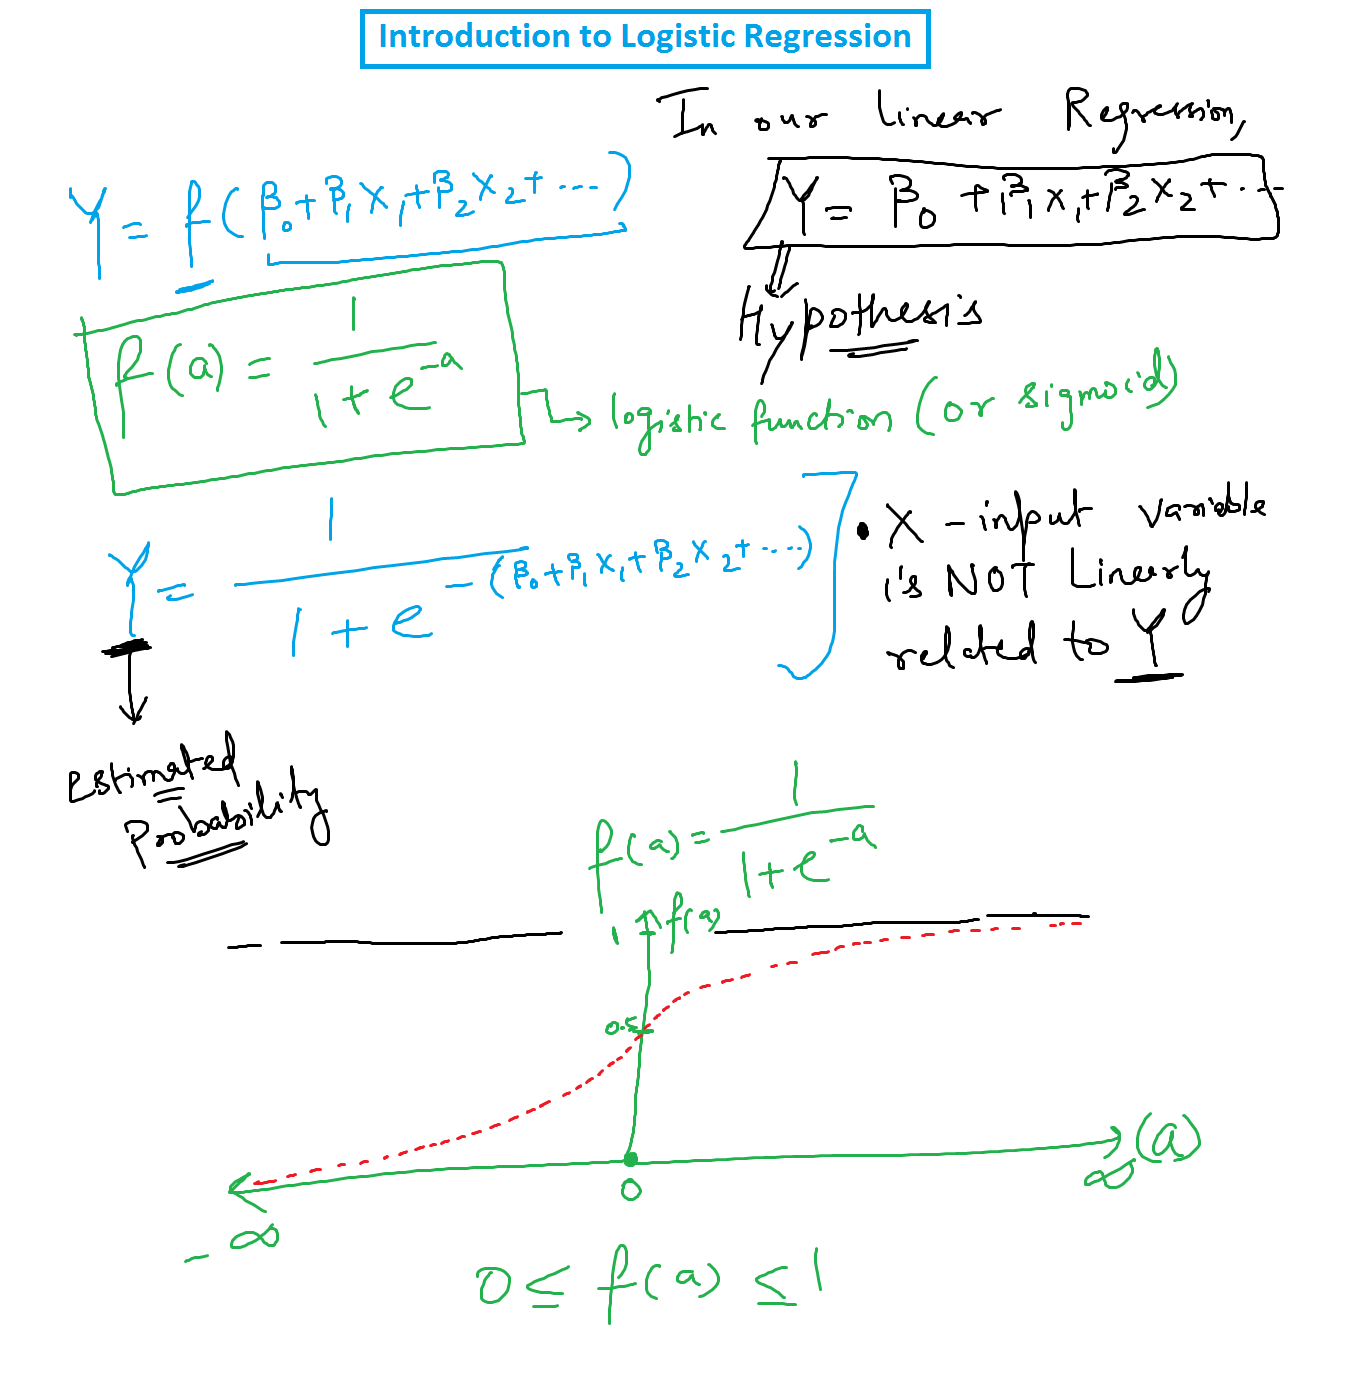 Introduction to Logistic Regression
In our Linear Regression,
Y = β₀ + β₁X₁ + β₂X₂ + ...
Hypothesis
Y = f(β₀ + β₁X₁ + β₂X₂ + ...)
f(a) = 1 / (1 + e^(-a))
logistic function (or sigmoid)
Y = 1 / (1 + e^(-(β₀ + β₁X₁ + β₂X₂ + ....)))
• X - input variable
is NOT Linearly
related to Y
Estimated
Probability
f(a) = 1 / (1 + e^(-a))
1 f(a)
0.5
(a)
0
-∞ ∞
0 ≤ f(a) ≤ 1